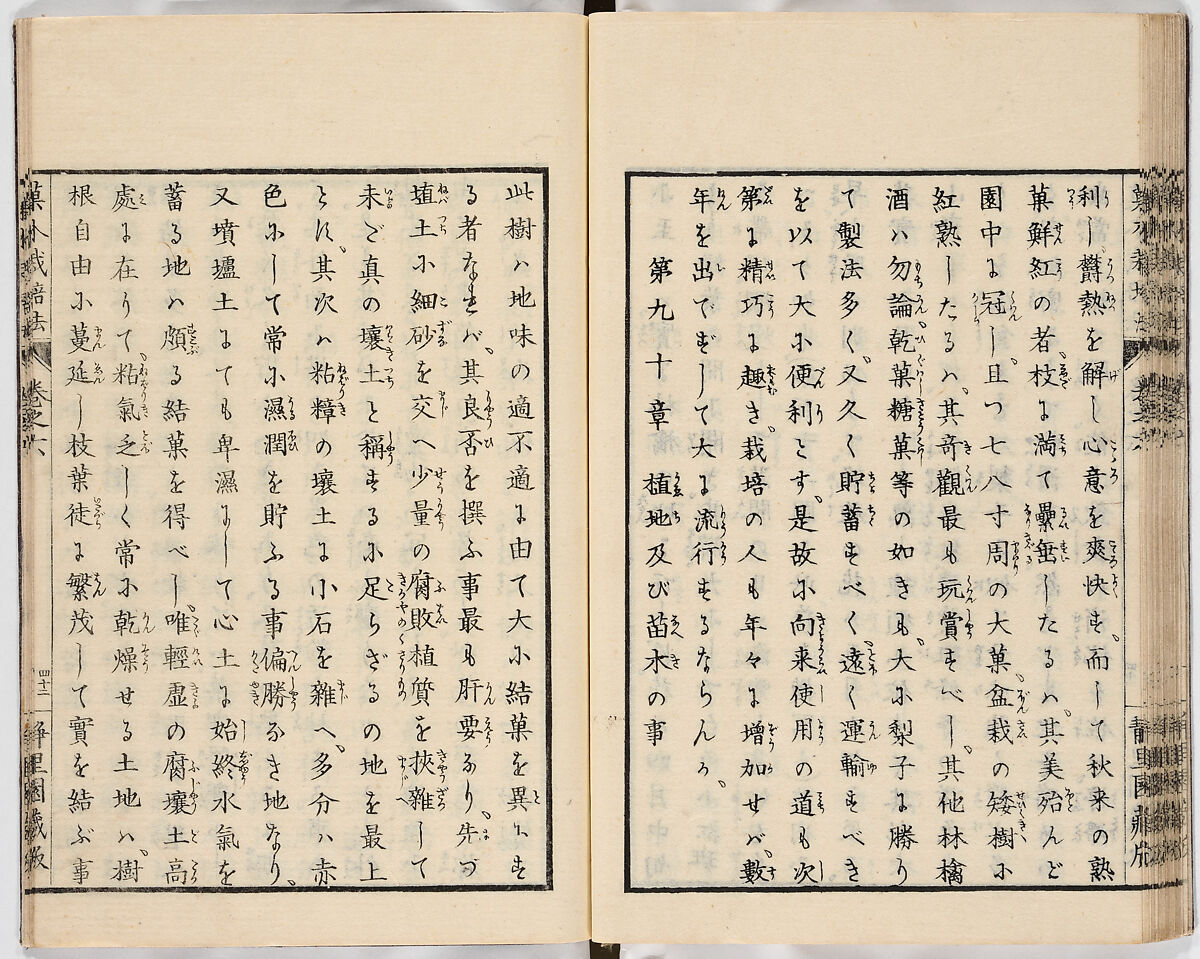 利し欝熱を解し心意を爽快す而して秋来の熟
菓鮮紅の者枝に満て纍垂したるハ其美殆んど
園中に冠し且つ七八寸周の大菓盆栽の矮樹に
紅熟したるハ其奇觀最も玩賞すべし其他林檎
酒ハ勿論乾菓糖菓等の如きも大に梨子に勝り
て製法多く又久く貯蓄すべく遠く運輸すべき
を以て大に便利とす是故に向来使用の道も次
第に精巧に趣き栽培の人も年々に増加せバ數
年を出でずして大に流行するならんか
第九十章 植地及び苗木の事
此樹ハ地味の適不適に由て大に結菓を異にす
る者なれバ其良否を撰ふ事最も肝要なり先づ
埴土に細砂を交へ少量の腐敗植質を挾雜して
未ご真の壤土と稱するに足らざるの地を最上
とす其次ハ粘糕の壤土に小石を雜へ多分ハ赤
色にして常に濕潤を貯ふる事偏勝なき地なり
又墳壚土にても卑濕にして心土に始終水氣を
蓄る地ハ頗る結菓を得べし唯輕虚の腐壤土高
處に在りて粘氣乏しく常に乾燥せる土地ハ樹
根自由に蔓延し枝葉徒に繁茂して實を結ぶ事
菓木栽培法 卷之六 四十二 靜里園藏版